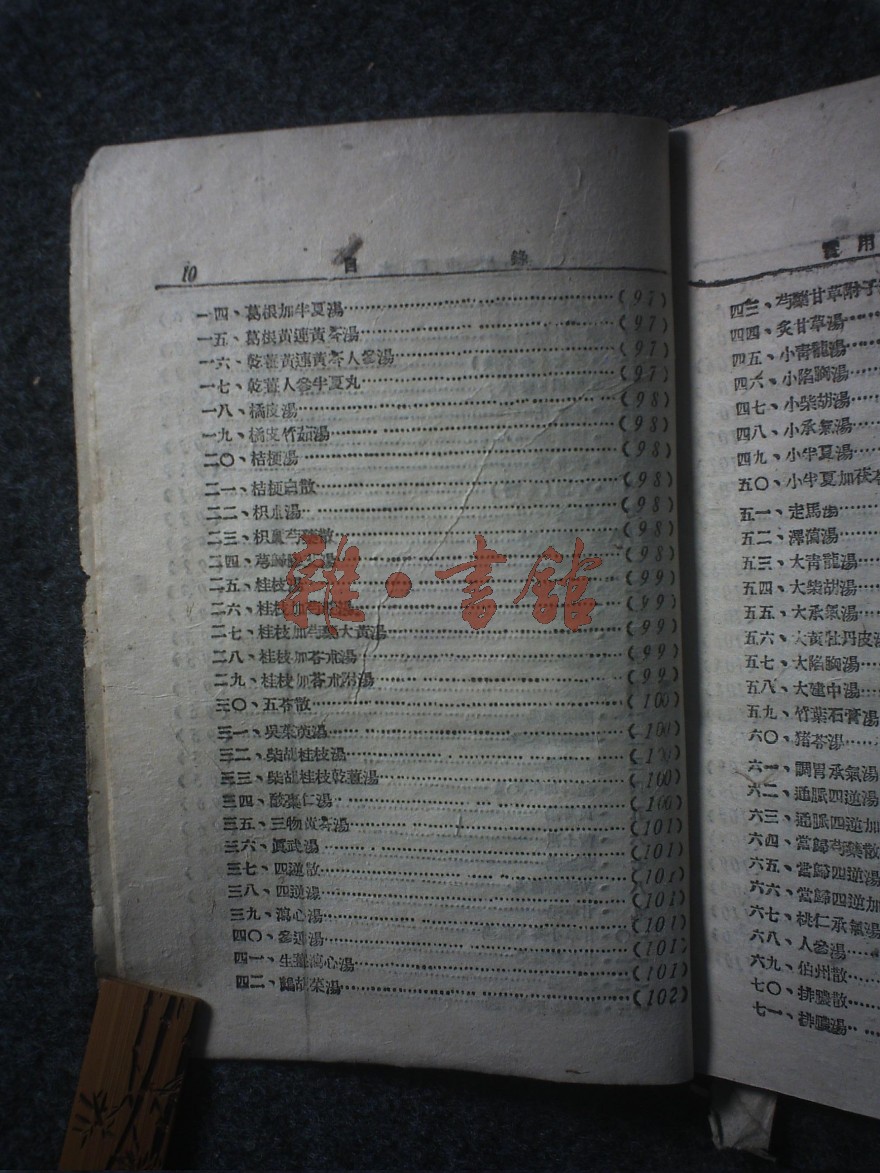 10 目 錄
一四、葛根加半夏湯(97)
一五、葛根黃連黃芩湯(97)
一六、乾薑黃連黃芩人參湯(97)
一七、乾薑人參半夏丸(97)
一八、橘皮湯(98)
一九、橘皮竹茹湯(98)
二〇、桔梗湯(98)
二一、桔梗白散(98)
二二、枳朮湯(98)
二三、枳實芍藥散(98)
二四、湯(98)
二五、桂枝湯(99)
二六、桂枝加芍藥湯(99)
二七、桂枝加芍藥大黃湯(99)
二八、桂枝加苓朮湯(99)
二九、桂枝加苓朮附湯(99)
三〇、五苓散(100)
三一、吳茱萸湯(100)
三二、柴胡桂枝湯(100)
三三、柴胡桂枝乾薑湯(100)
三四、酸棗仁湯(100)
三五、三物黃芩湯(101)
三六、眞武湯(101)
三七、四逆散(101)
三八、四逆湯(101)
三九、瀉心湯(101)
四〇、參連湯(101)
四一、生薑瀉心湯(101)
四二、鷓胡菜湯(102)
雜·書館
實用
四三、芍藥甘草附子
四四、炙甘草湯
四五、小青龍湯
四六、小陷胸湯
四七、小柴胡湯
四八、小承氣湯
四九、小半夏湯
五〇、小半夏加茯苓
五一、走馬湯
五二、澤蘭湯
五三、大青龍湯
五四、大柴胡湯
五五、大承氣湯
五六、大黃牡丹皮湯
五七、大陷胸湯
五八、大建中湯
五九、竹葉石膏湯
六〇、猪苓湯
六一、調胃承氣湯
六二、通脈四逆湯
六三、通脈四逆加
六四、當歸芍藥散
六五、當歸四逆湯
六六、當歸四逆加
六七、桃仁承氣湯
六八、人參湯
六九、伯州散
七〇、排膿散
七一、排膿湯